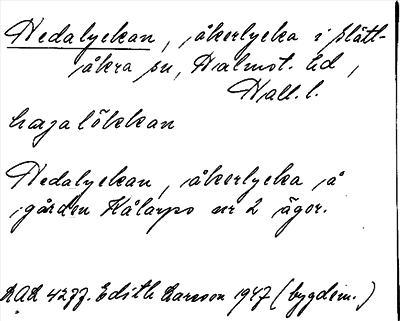 Nedalyckan, åkerlycka i Slätt-
åkra sn, Halmst. hd,
Hall. l.
haajalökkan
Nedalyckan, åkerlycka å
gården Kålarps nr 2 ägor.
4277. Edith Larsson 1947 (bygdem.)